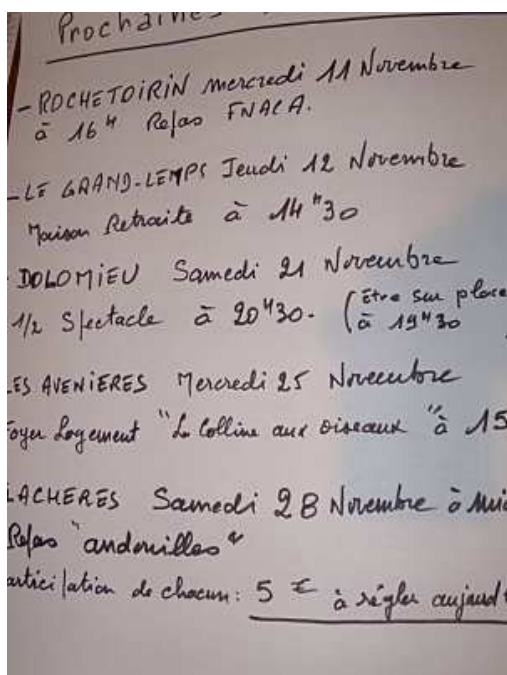 Prochaines
- ROCHETOIRIN mercredi 11 Novembre
à 16H Repas FNACA.
- LE GRAND-LEMPS Jeudi 12 Novembre
Maison Retraite à 14H30
DOLOMIEU Samedi 21 Novembre
1/2 Spectacle à 20H30. (Etre sur place
à 19H30
LES AVENIERES Mercredi 25 Novembre
Foyer Logement "La Colline aux oiseaux" à 15
LACHERES Samedi 28 Novembre à
Repas "andouilles"
articipation de chacun: 5 € à régler aujourd